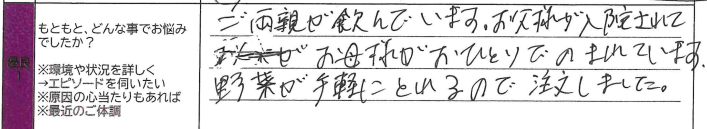 優良
1
もともと、どんな事でお悩み
でしたか？
※環境や状況を詳しく
→エピソードを伺いたい
※原因の心当たりもあれば
※最近のご体調
ご両親が飲んでいます。お父様が入院されて
お母様がおひとりでのまれています。
野菜が手軽にとれるので注文しました。